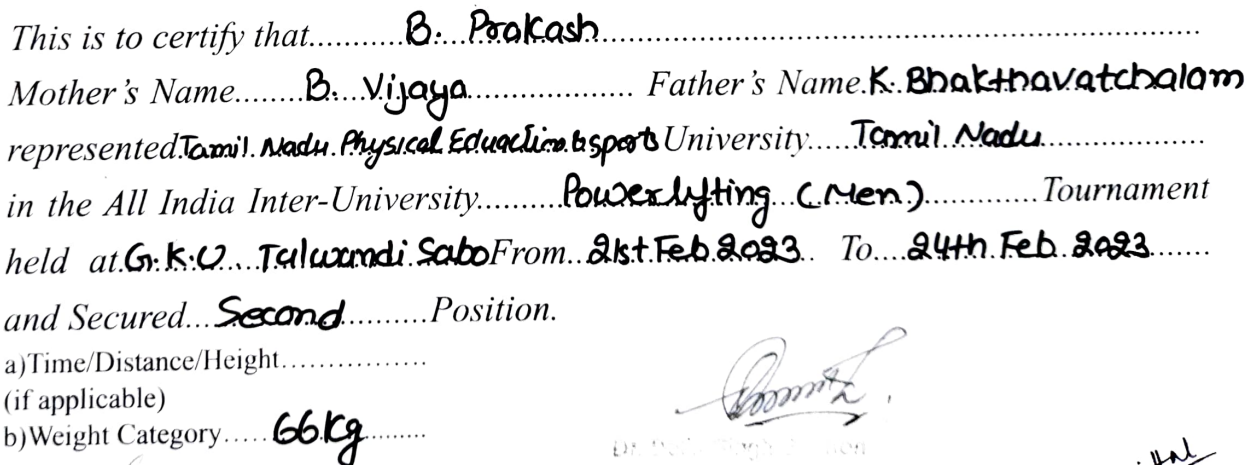 This is to certify that..........B. Prakash..........
Mother's Name.......B. Vijaya.......... Father's Name.K. Bhakthavatchalam
represented.Tamil Nadu Physical Eduaction & sports University.....Tamil Nadu..........
in the All India Inter-University.........Powerlifting (Men)............Tournament
held at.G.K.U.... Talwandi Sabo From..21st Feb 2023.. To....24th Feb 2023.......
and Secured...Second.........Position.
a)Time/Distance/Height................
(if applicable)
b)Weight Category.....66 Kg........